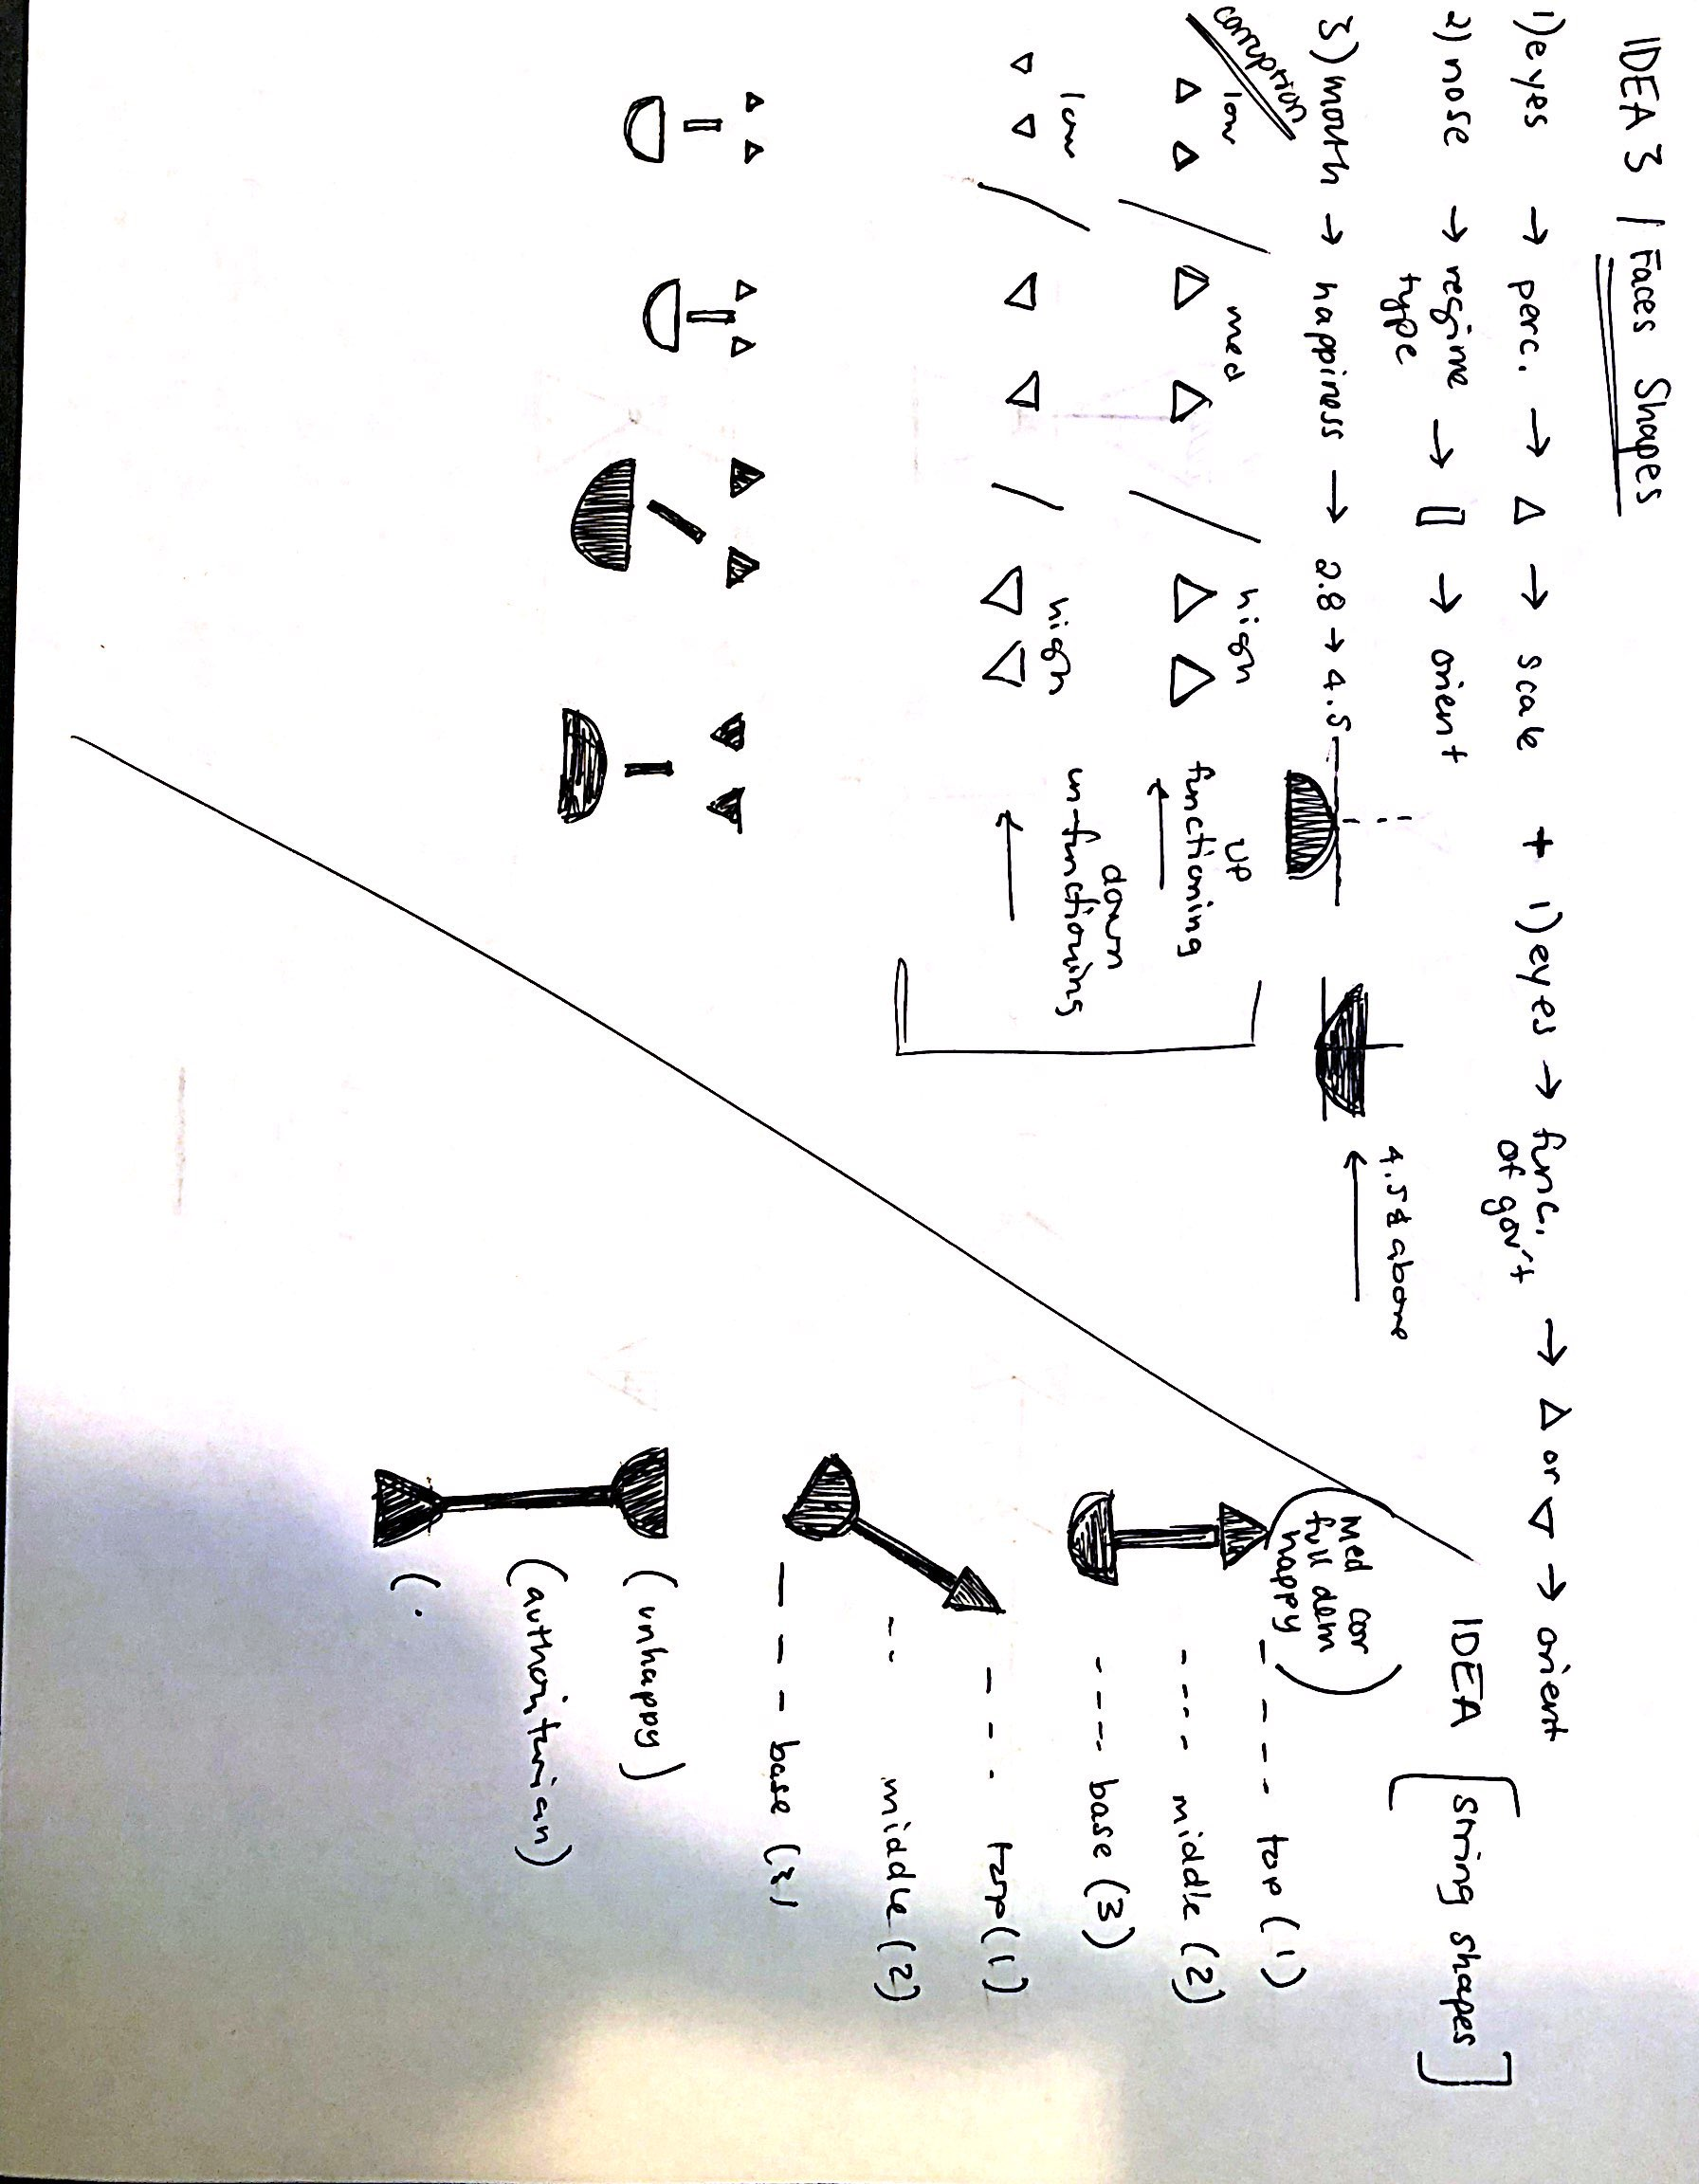 IDEA 3 | Faces Shapes
1) eyes → perc. → △ → scale + 1) eyes → func. of gov't → △ or ▽ → orient
2) nose → regime type → ▯ → orient
3) mouth → happiness → 2.8 → 4.5
4.5 & above
corruption
low / med / high
up
functioning
low / high
down
un-functioning
IDEA [string shapes]
(med cor
full dem
happy)
top (1)
middle (2)
base (3)
top (1)
middle (2)
base (3)
(unhappy)
(authoritarian)
(.